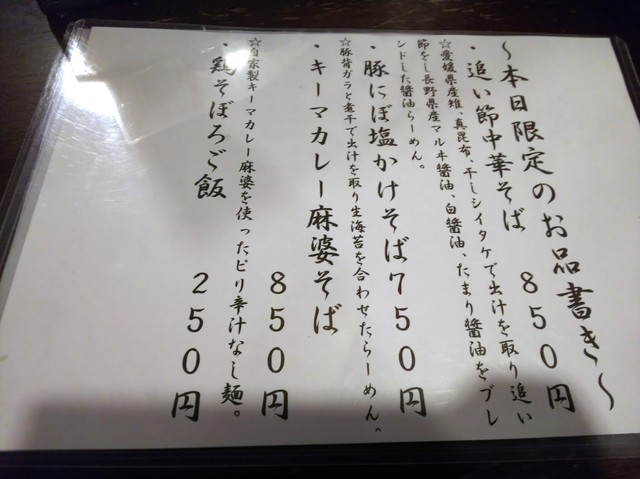 〜本日限定のお品書き〜
・追い節中華そば 850円
☆愛媛県産雄、真昆布、干しシイタケで出汁を取り追い
節をし長野県産マルキ醬油、白醬油、たまり醬油をブレ
ンドした醬油らーめん。
・豚にぼ塩かけそば750円
☆豚背ガラと煮干で出汁を取り生海苔を合わせたらーめん。
・キーマカレー麻婆そば
850円
☆自家製キーマカレー麻婆を使ったピリ辛汁なし麺。
・鶏そぼろご飯
250円